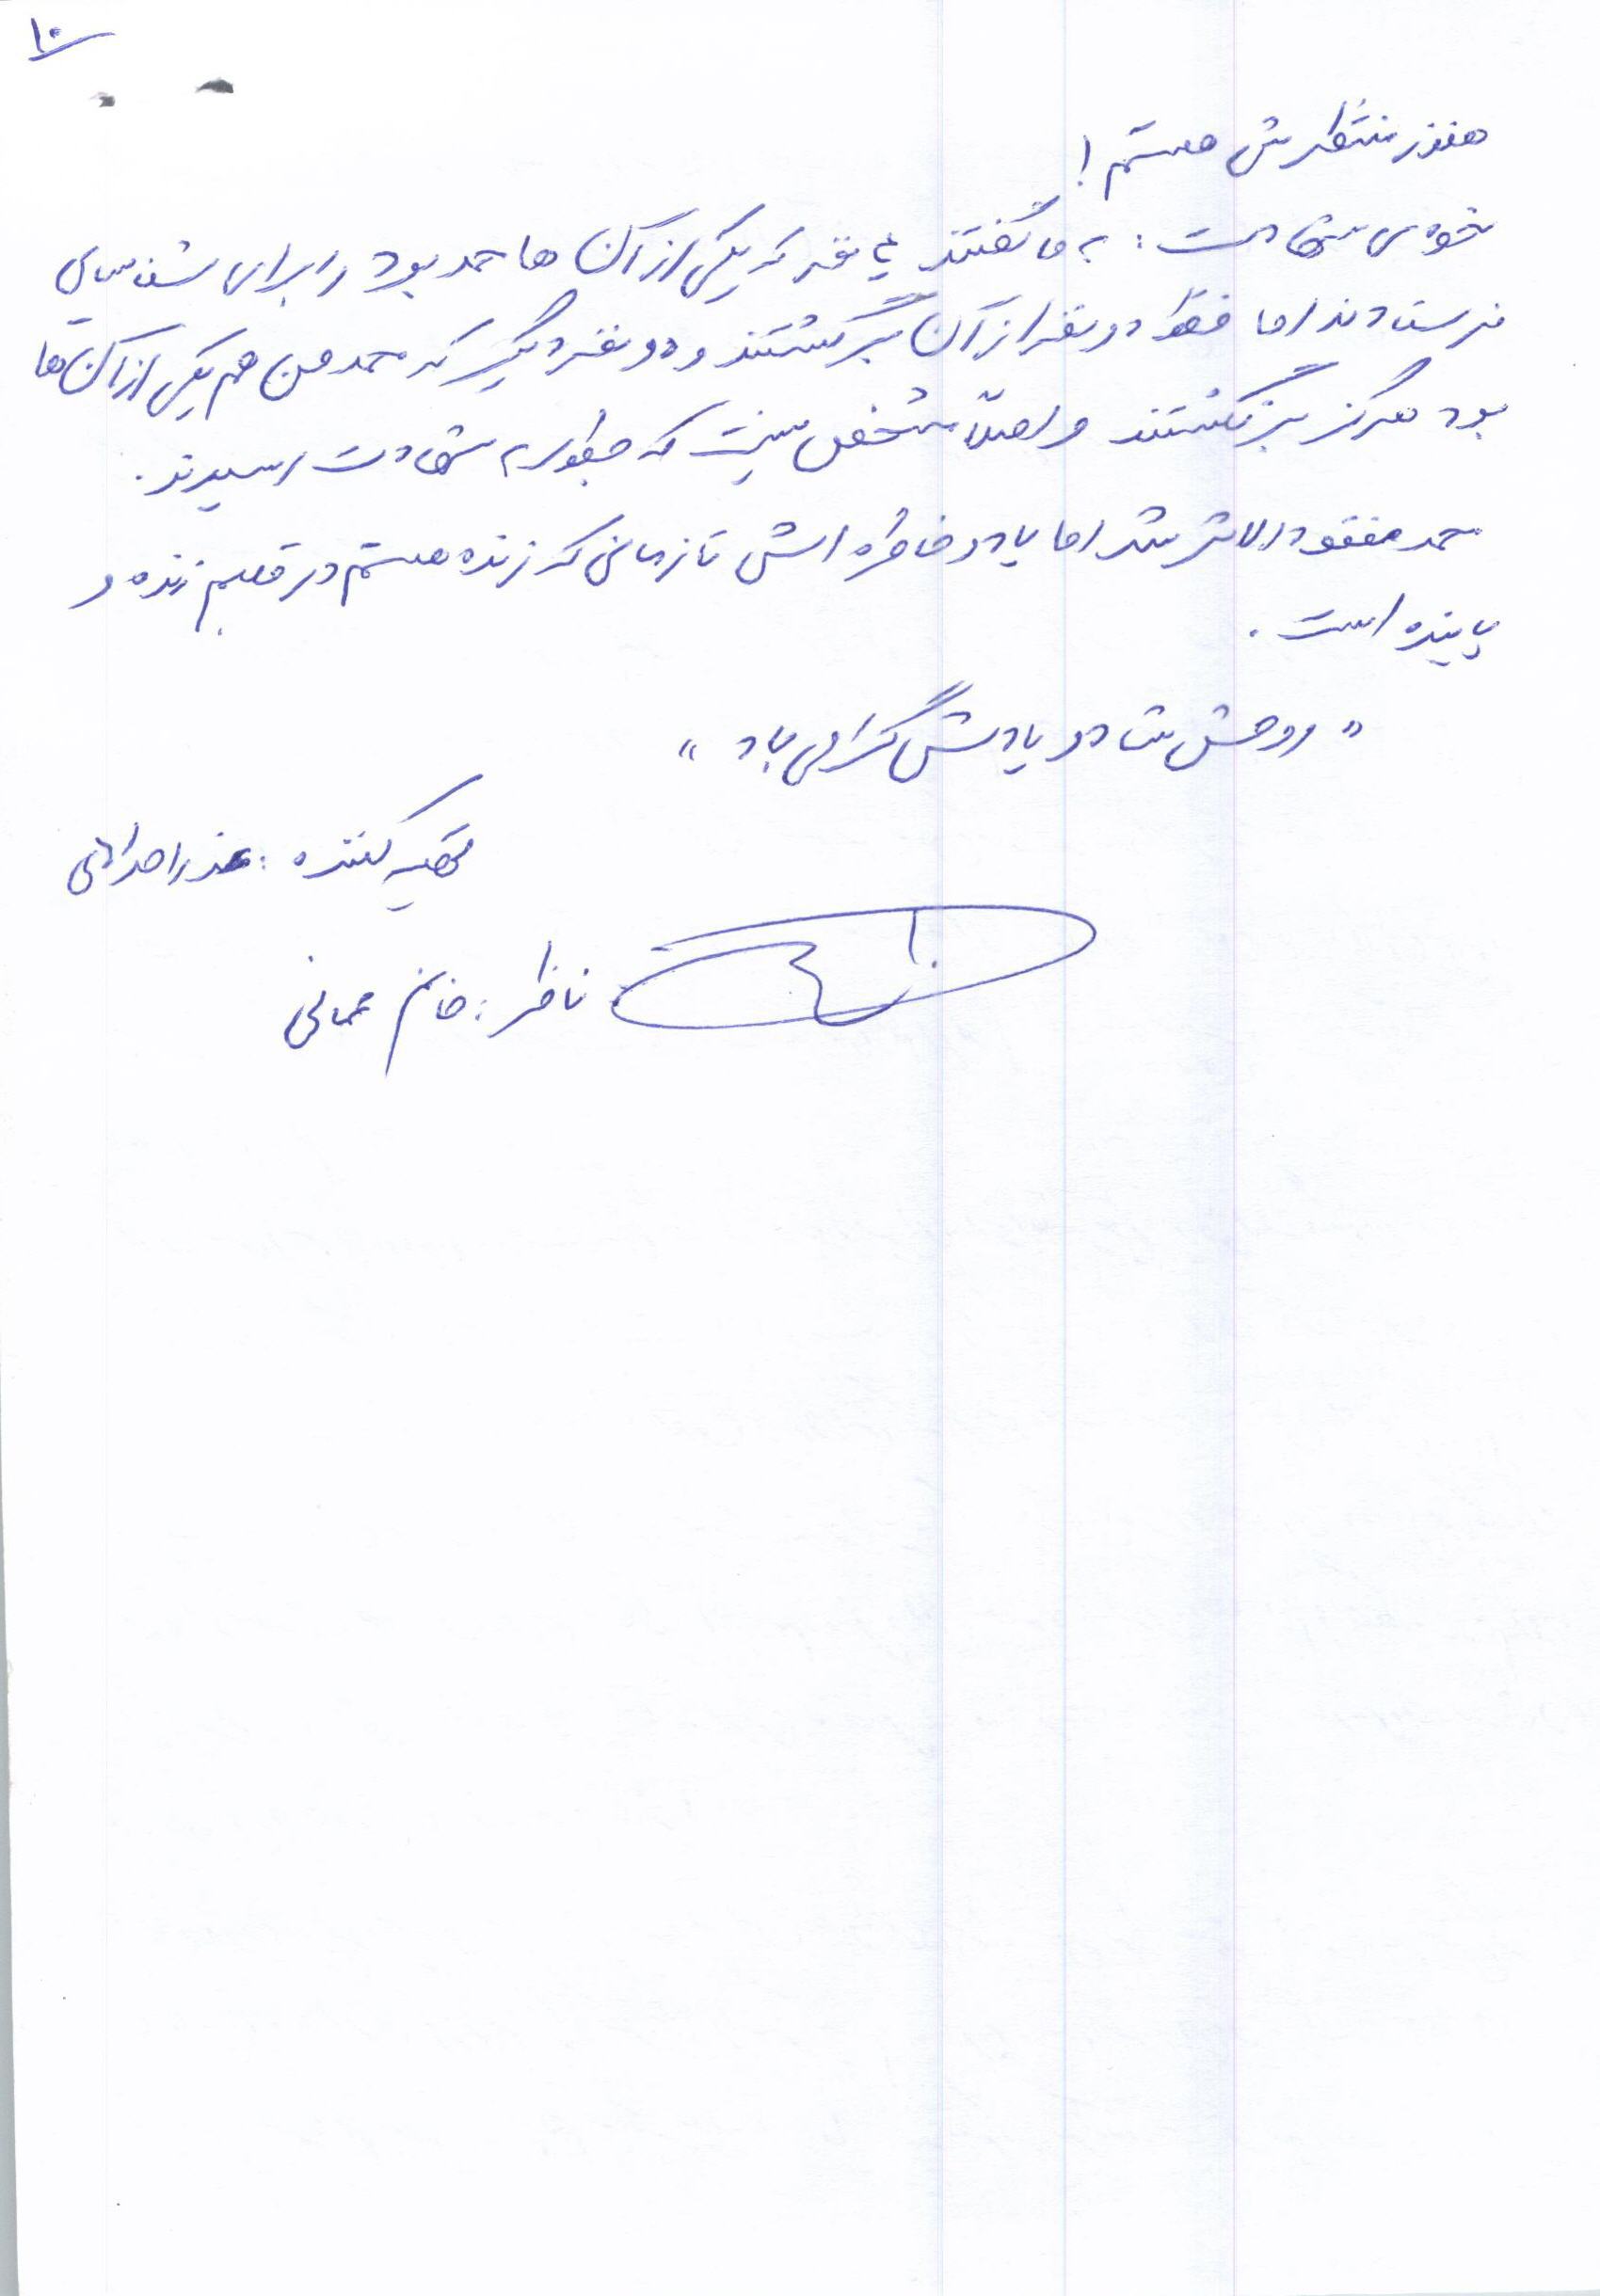 ۱۰
هنوز منتظرش هستم!
نحوه ی شهادت: به ما گفتند ۴ نفر که یکی از آن ها محمد بود را برای شناسایی
فرستادند اما فقط دو نفر از آن برگشتند و دو نفر دیگر که محمد من هم یکی از آن ها
بود هرگز برنگشتند و اصلاً مشخص نیست که چطور به شهادت رسیدند.
محمد مفقودالاثر شد اما یاد و خاطره اش تا زمانی که زنده هستم در قلبم زنده و
پاینده است.
«روحش شاد و یادش گرامی باد»
تهیه کننده: عذرا
ناظر: خانم